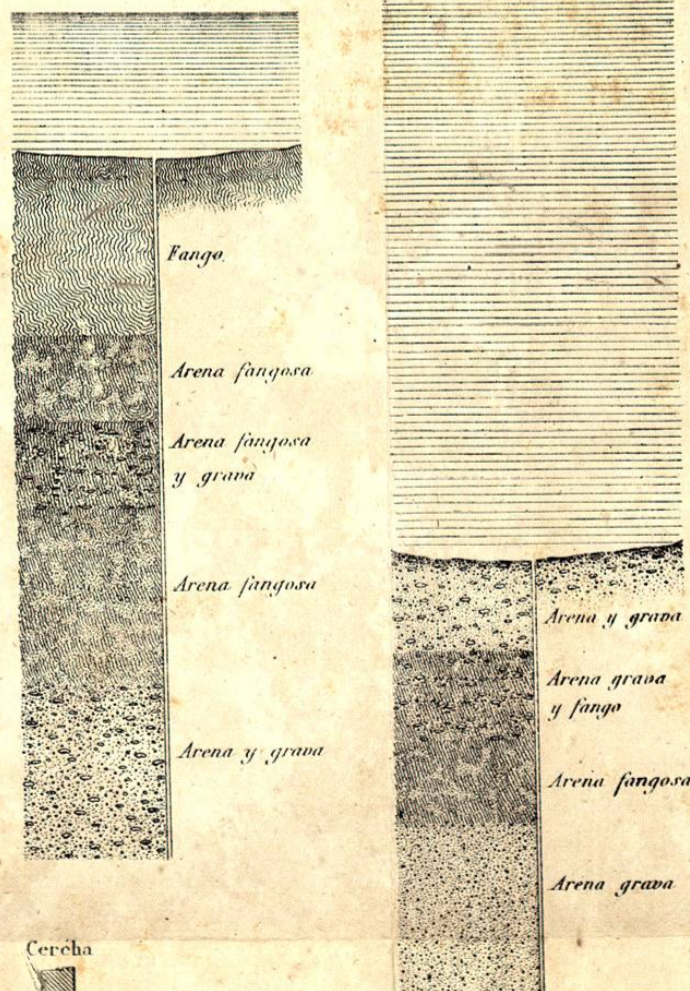 Fango.
Arena fangosa
Arena fangosa
y grava
Arena fangosa
Arena y grava
Arena y grava
Arena grava
y fango
Arena fangosa
Arena grava
Cercha